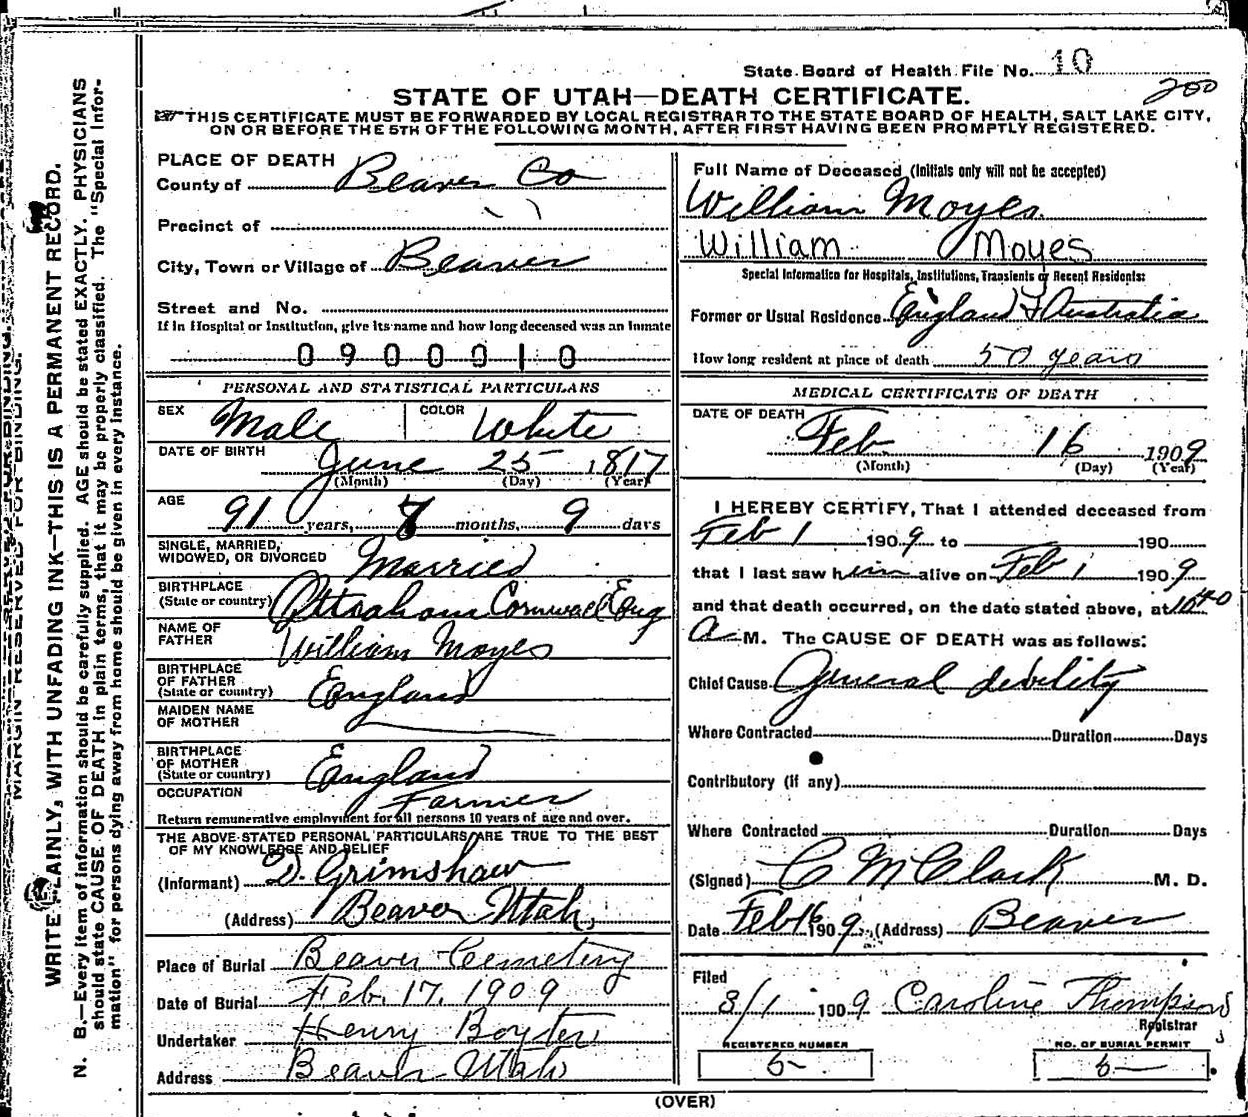 State Board of Health File No. 10
200
STATE OF UTAH—DEATH CERTIFICATE.
THIS CERTIFICATE MUST BE FORWARDED BY LOCAL REGISTRAR TO THE STATE BOARD OF HEALTH, SALT LAKE CITY,
ON OR BEFORE THE 5TH OF THE FOLLOWING MONTH, AFTER FIRST HAVING BEEN PROMPTLY REGISTERED.
MARGIN RESERVED FOR BINDING.
WRITE PLAINLY, WITH UNFADING INK—THIS IS A PERMANENT RECORD.
N. B.—Every item of information should be carefully supplied. AGE should be stated EXACTLY. PHYSICIANS
should state CAUSE OF DEATH in plain terms, that it may be properly classified. The "Special Infor-
mation" for persons dying away from home should be given in every instance.
PLACE OF DEATH
County of Beaver Co
Precinct of " "
City, Town or Village of Beaver
Street and No.
If in Hospital or Institution, give its name and how long deceased was an inmate
0900010
PERSONAL AND STATISTICAL PARTICULARS
SEX Male COLOR White
DATE OF BIRTH June 25 1817
(Month) (Day) (Year)
AGE 91 years, 7 months, 9 days
SINGLE, MARRIED,
WIDOWED, OR DIVORCED Married
BIRTHPLACE
(State or country) Cornwall Eng
NAME OF
FATHER William Moyes
BIRTHPLACE
OF FATHER
(State or country) England
MAIDEN NAME
OF MOTHER
BIRTHPLACE
OF MOTHER
(State or country) England
OCCUPATION Farmer
Return remunerative employment for all persons 10 years of age and over.
THE ABOVE STATED PERSONAL PARTICULARS ARE TRUE TO THE BEST
OF MY KNOWLEDGE AND BELIEF
(Informant) D. Grimshaw
(Address) Beaver Utah
Place of Burial Beaver Cemetery
Date of Burial Feb. 17. 1909
Undertaker Henry Boyter
Address Beaver Utah
Full Name of Deceased (Initials only will not be accepted)
William Moyes
William Moyes
Special Information for Hospitals, Institutions, Transients or Recent Residents:
Former or Usual Residence England & Australia
How long resident at place of death 50 years
MEDICAL CERTIFICATE OF DEATH
DATE OF DEATH Feb 16 1909
(Month) (Day) (Year)
I HEREBY CERTIFY, That I attended deceased from
Feb 1 1909 to 190
that I last saw him alive on Feb 1 1909
and that death occurred, on the date stated above, at 10 40
a M. The CAUSE OF DEATH was as follows:
Chief Cause General debility
Where Contracted Duration Days
Contributory (if any)
Where Contracted Duration Days
(Signed) C M Clark M. D.
Date Feb 16 1909, (Address) Beaver
Filed
3/1 1909 Caroline Thompson
Registrar
REGISTERED NUMBER NO. OF BURIAL PERMIT
6— 6—
(OVER)